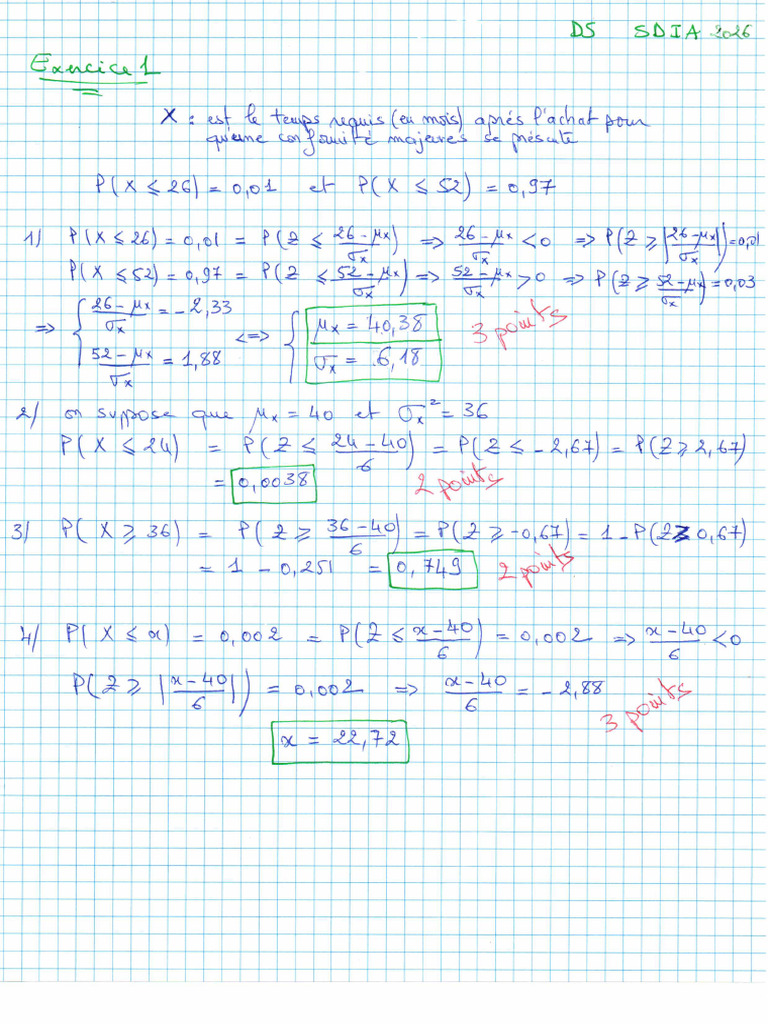 DS SDIA 2026
Exercice 1
X : est le temps requis (en mois) aprés l'achat pour
qu'une conformité majeures se présente
P(X ⩽ 26) = 0,01 et P(X ⩽ 52) = 0,97
1) P(X ⩽ 26) = 0,01 = P(Z ⩽ (26 - μx)/σx) => (26 - μx)/σx < 0 => P(Z ⩾ |(26 - μx)/σx|) = 0,01
P(X ⩽ 52) = 0,97 = P(Z ⩽ (52 - μx)/σx) => (52 - μx)/σx > 0 => P(Z ⩾ (52 - μx)/σx) = 0,03
=> { (26 - μx)/σx = - 2,33 <=> { μx = 40,38 3 points
(52 - μx)/σx = 1,88 σx = 6,18
2) on suppose que μx = 40 et σx² = 36
P(X ⩽ 24) = P(Z ⩽ (24 - 40)/6) = P(Z ⩽ - 2,67) = P(Z ⩾ 2,67)
= 0,0038 2 points
3) P(X ⩾ 36) = P(Z ⩾ (36 - 40)/6) = P(Z ⩾ -0,67) = 1 - P(Z ⩾ 0,67)
= 1 - 0,251 = 0,749 2 points
4) P(X ⩽ x) = 0,002 = P(Z ⩽ (x - 40)/6) = 0,002 => (x - 40)/6 < 0
P(Z ⩾ |(x - 40)/6|) = 0,002 => (x - 40)/6 = - 2,88 3 points
x = 22,72